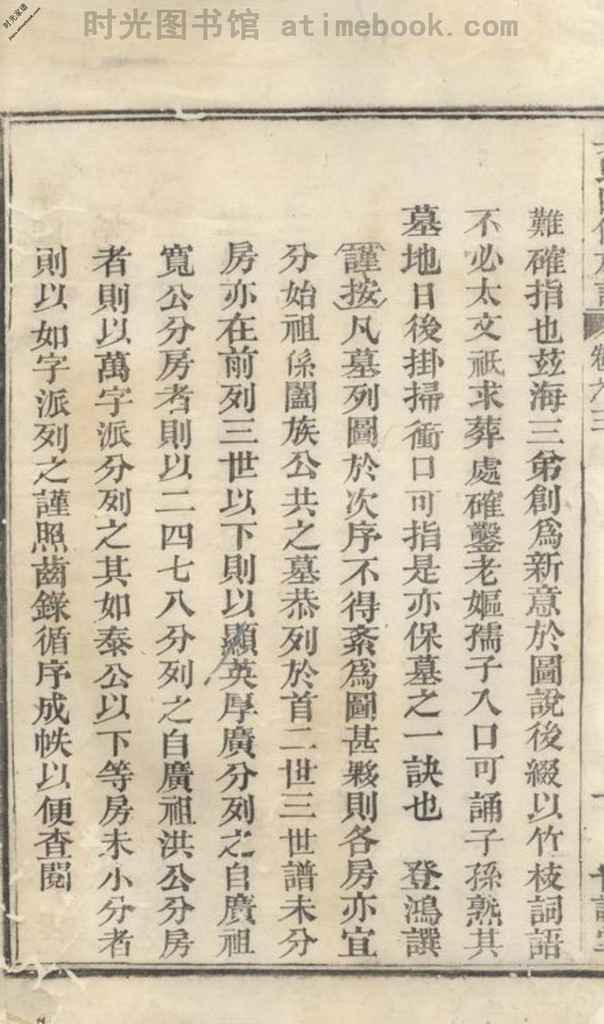 时光图书馆 atimebook.com
时光家谱
難確指也玆海三弟創爲新意於圖說後綴以竹枝詞語
不必太文祇求葬處確鑿老嫗孺子入口可誦子孫熟其
墓地日後掛掃衝口可指是亦保墓之一訣也 登鴻譔
謹按凡墓列圖於次序不得紊爲圖甚夥則各房亦宜
分始祖係闔族公共之墓恭列於首二世三世譜未分
房亦在前列三世以下則以顯英厚廣分列之自廣祖
寬公分房者則以二四七八分列之自廣祖洪公分房
者則以萬字派分列之其如泰公以下等房未小分者
則以如字派列之謹照齒錄循序成帙以便查閱
卷之三